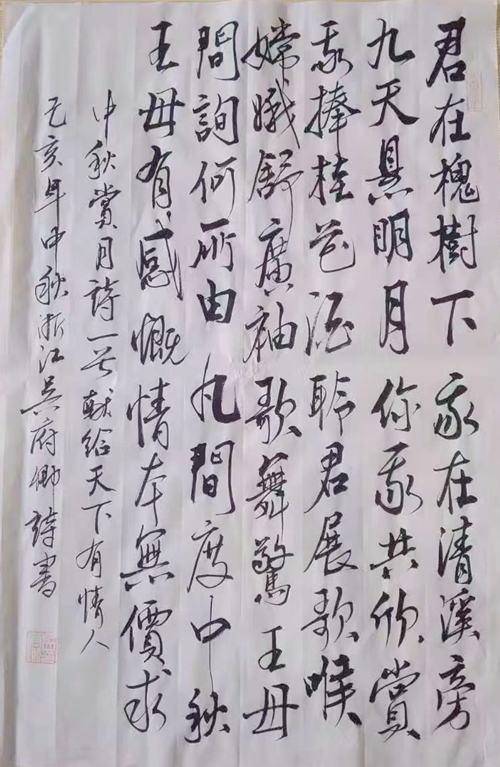 君在槐樹下我在清溪旁
九天懸明月你我共欣賞
我捧桂花酒聆君展歌喉
嫦娥舒廣袖歌舞驚王母
問詢何所由凡間度中秋
王母有感慨情本無價求
中秋賞月詩一首献给天下有情人
己亥年中秋浙江吴府卿詩書